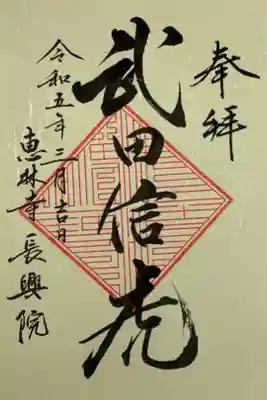 奉拝
武田信虎
令和五年三月吉日
恵林寺長興院